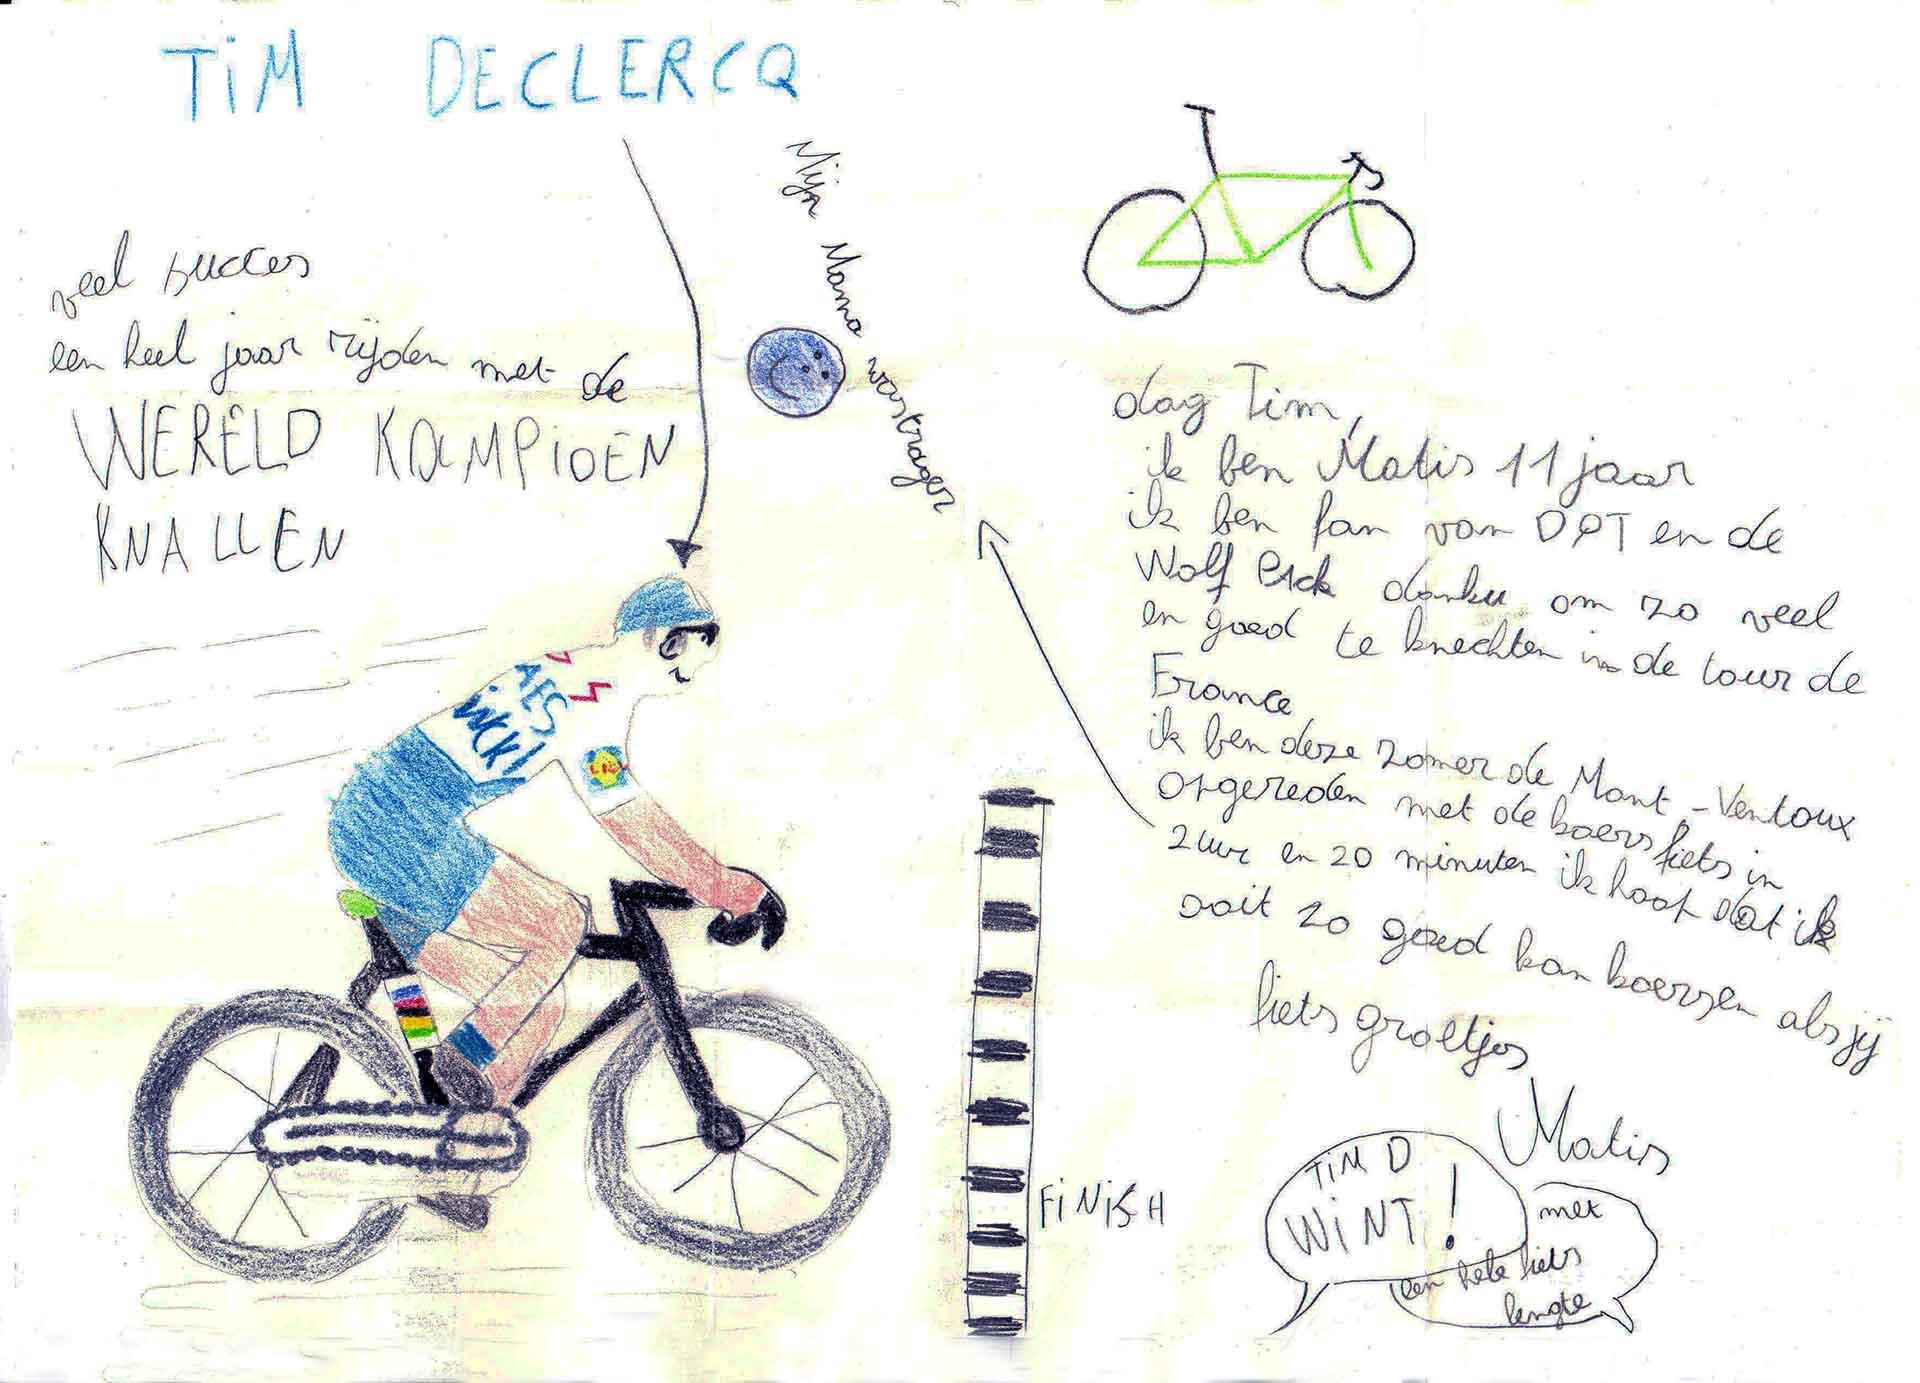 TiM DECLERCQ
Mijn Mama was trager
veel succes
een heel jaar rijden met de
WERELD KAMPIOEN
KNALLEN
dag Tim,
ik ben Matis 11 jaar
ik ben fan van DQT en de
Wolf Pack danku om zo veel
en goed te knechten in de tour de
France
ik ben deze zomer de Mont-Ventoux
opgereden met de koersfiets in
2 uur en 20 minuten ik hoop dat ik
ooit zo goed kan koersen als jij
fiets groetjes
Matis
LIDL
FiNiSH
TiM D
WiNT!
met
een hele fiets
lengte